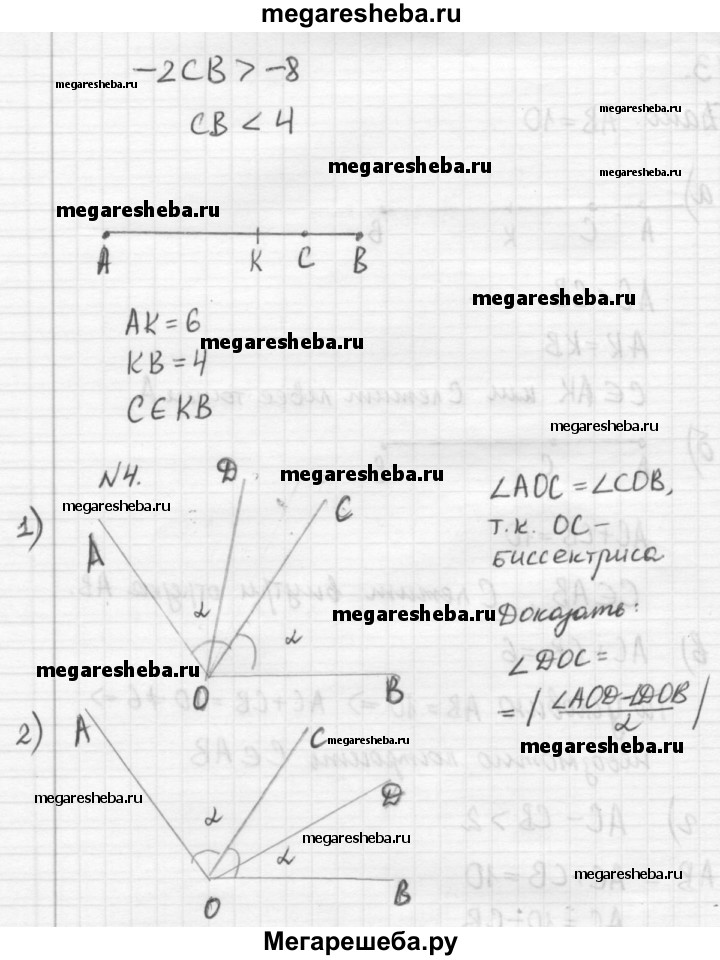 megaresheba.ru
-2CB > -8
megaresheba.ru
megaresheba.ru
CB < 4
megaresheba.ru
megaresheba.ru
megaresheba.ru
A K C B
megaresheba.ru
AK = 6
megaresheba.ru
KB = 4
C∈KB
megaresheba.ru
N4.
megaresheba.ru
megaresheba.ru
1)
A D C
α α
O B
∠AOC = ∠COB,
т.к. OC –
биссектриса
megaresheba.ru
Доказать:
∠DOC =
= | ∠AOD - ∠DOB / 2 |
megaresheba.ru
megaresheba.ru
2)
A C D
megaresheba.ru
megaresheba.ru
α α
megaresheba.ru
megaresheba.ru
O B
Мегарешеба.ру